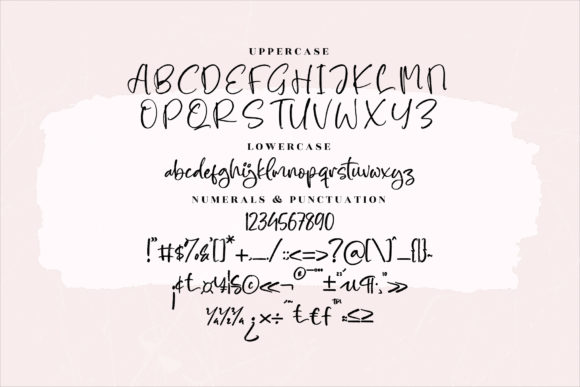 UPPERCASE
ABCDEFGHIJKLMN
OPQRSTUVWXYZ
LOWERCASE
abcdefghijklmnopqrstuvwxyz
NUMERALS & PUNCTUATION
1234567890
!"#$%&'()*+,-./:;<=>?@[\]^_{|}~
¡¢£¤¥¦§©«¬®¯°±²³´µ¶·¸¹»
¼½¾¿×÷£€ƒ™≤≥